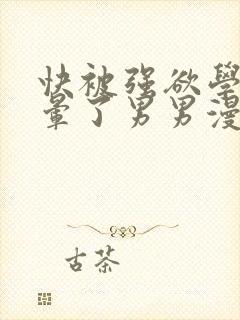 快被强欲學
暈了男男漫
古茶